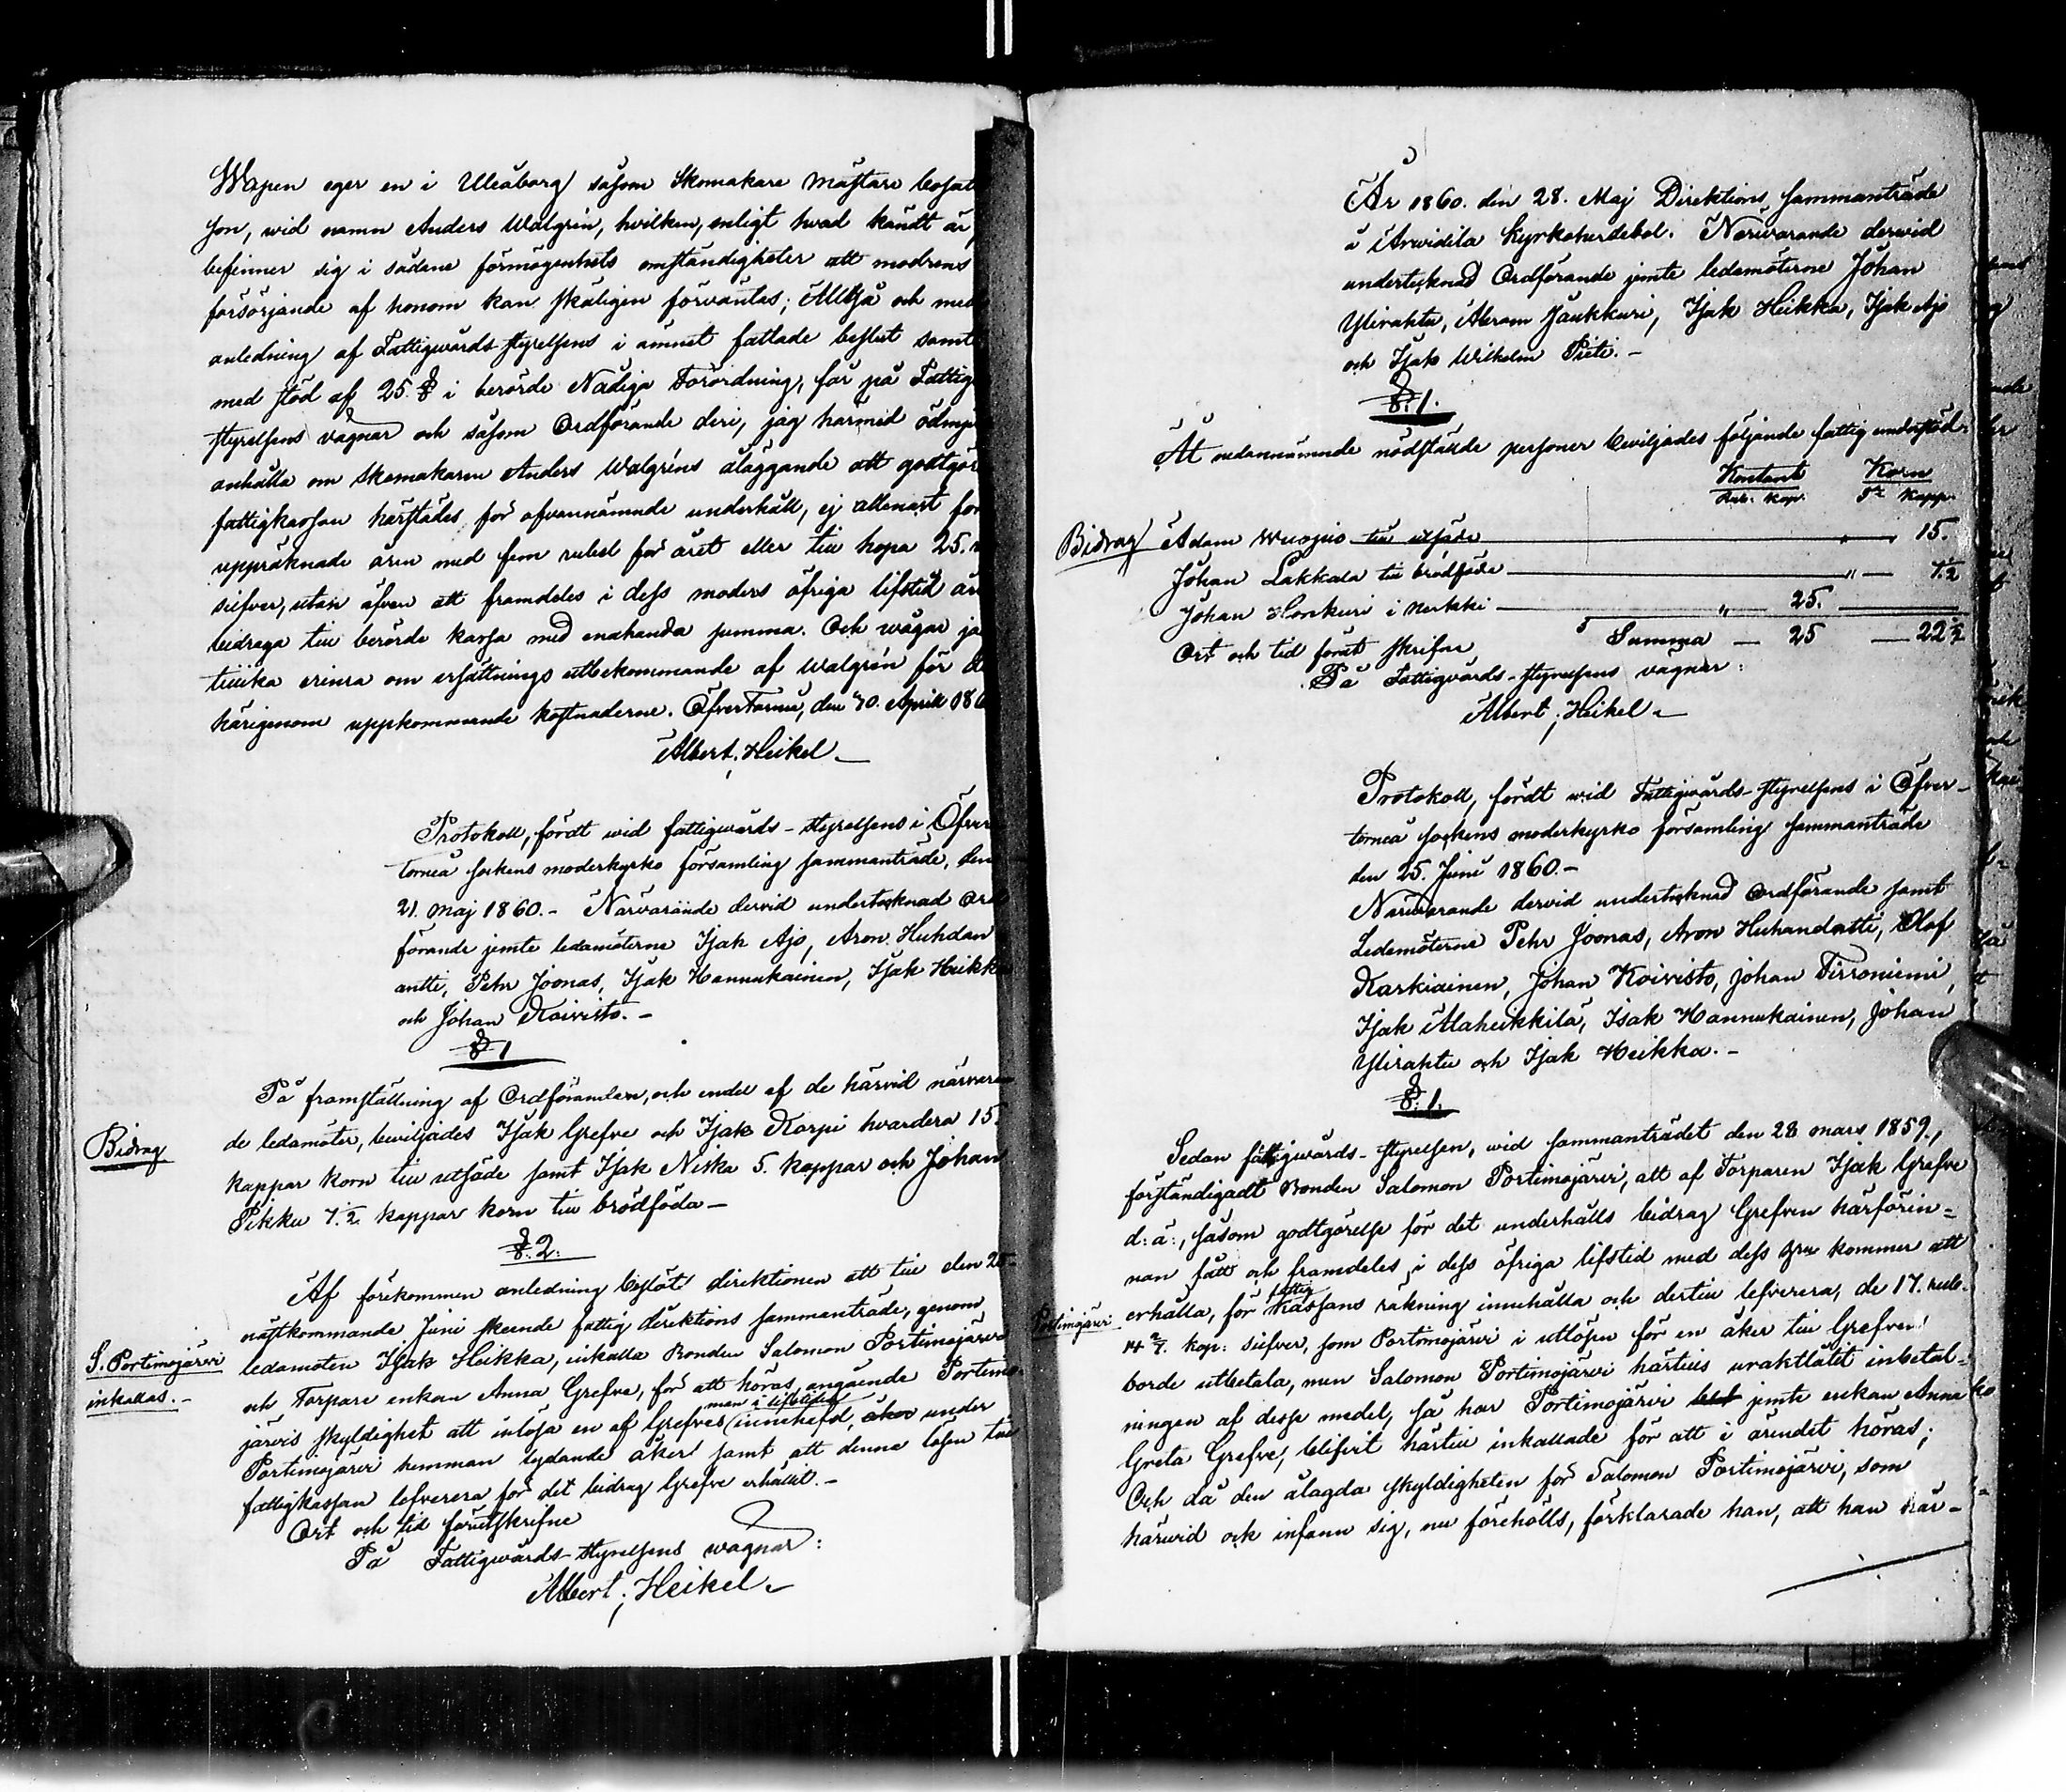 Wapen eger en i Uleåborg såsom Skomakare Mästare bosatt
son, wid namn Anders Walgrén, hvilken, enligt hvad kändt är,
befinner sig i sådane förmögenhets omständigheter att modrens
försörjande af honom kan skäligen förväntas; Alltså och med
anledning af Fattigvårds styrelsens i ämnet fattade beslut samt
med stöd af 25. § i berörde Nådiga Förordning, får på Fattig
styrelsens vägnar och såsom Ordförande deri, jag härmed ödmju
anhålla om Skomakaren Anders Walgréns åläggande att godtgör
fattigkassan härstädes för ofvannämnde underhåll, ej allenast för
uppräknade åren med fem rubel för året eller till hopa 25.
silfver, utan äfven att framdeles i dess moders öfriga lifstid år
bidraga till berörde kassa med enahanda summa. Och wågar ja
tillika erinra om ersättnings utbekommande af Walgrén för d
härigenom uppkommande kostnaderne. ÖfverTorneå, den 30. April 186
Albert Heikel
Protokoll, fördt wid fattigwårds-styrelsens i Öfver
torneå sockens moderkyrko församling sammanträde, den
21. Maj 1860. - Närvarande dervid undertecknad Ord
förande jemte ledamöterne Isak Ajo, Aron Huhdan
antti, Pehr Joonas, Isak Hannukainen, Isak Heikka
och Johan Koivisto. -
§ 1
På framställning af Ordföranden, och endel af de härvid närvaran
de ledamöter, beviljades Isak Grefve och Isak Karpi hvardera 15.
Bidrag
kappar korn till utsäde samt Isak Niska 5. kappar och Johan
Pikku 7.½ kappar korn till brödföda -
§. 2.
Af förekommen anledning beslöt direktionen att till den 25
nästkommande Juni skeende fattig direktions sammanträde, genom
S. Portimojärvi
inkallas. -
ledamoten Isak Heikka, inkalla Bonden Salomon Portimojärvi
och Torpare enkan Anna Grefve, för att höras, angående Portimo-
järvis skyldighet att inlösa en af Grefves (man i lifstiden) innehafd, åker under
Portimojärvi hemman lydande åker samt att denna lösen till
fattigkassan lefverera för det bidrag Grefve erhållit. -
Ort och tid förutskrifne
På Fattigwårds-styrelsens wägnar:
Albert Heikel
År 1860. den 28. Maj Direktions sammanträde
å Arwidila Kyrkoherdebol. Närvarande derwid
undertecknad Ordförande jemte ledamöterne Johan
Yliraktu, Abram Jaukkuri, Isak Heikka, Isak Ajo
och Isak Wilhelm Pieti. -
§. 1.
Åt nedannämnde nödstälde personer beviljades följande fattig understöd:
Kontant Korn
Rub. kop. Tr kapp.
Bidrag Adam Wuopio till utsäde " 15.
Johan Lakkala till brödföda " 7.½
Johan Honkuri i Karkki " 25.
Summa 25 22½
Ort och tid förut skrifne
På Fattigvårds-styrelsens vägnar:
Albert Heikel
Protokoll, fördt wid Fattigwårds-styrelsens i Öfver-
torneå sockens moderkyrko församling sammanträde
den 25. Juni 1860. -
Närvarande dervid undertecknad Ordförande samt
Ledamöterne Pehr Joonas, Aron Huhanantti, Olof
Karkiainen, Johan Koivisto, Johan Tirroniemi,
Isak Alaheikkilä, Isak Hannukainen, Johan
Yliraktu och Isak Heikka. -
§. 1.
Sedan fattigwårds-styrelsen, wid sammanträdet den 28 mars 1859.,
förständigadt Bonden Salomon Portimojärvi, att af Torparen Isak Grefve
d: ä:, såsom godtgörelse för det underhålls bidrag Grefven härförin-
nan fått och framdeles i dess öfriga lifstid med dess hustru kommer att
Portimojärvi
erhålla, för fattig kassans räkning innehålla och dertill lefverera, de 17. rub.
14 2/7. kop: silfver, som Portimojärvi i utlösen för en åker till Grefven
borde utbetala, men Salomon Portimojärvi härtills uraktlåtit inbetal-
ningen af desse medel, så har Portimojärvi jemte enkan Anna
Greta Grefve, blifvit härtill inkallade för att i ärendet höras;
Och då den ålagda skyldigheten för Salomon Portimojärvi, som
härwid ock infann sig, nu förehölls, förklarade han, att han här-